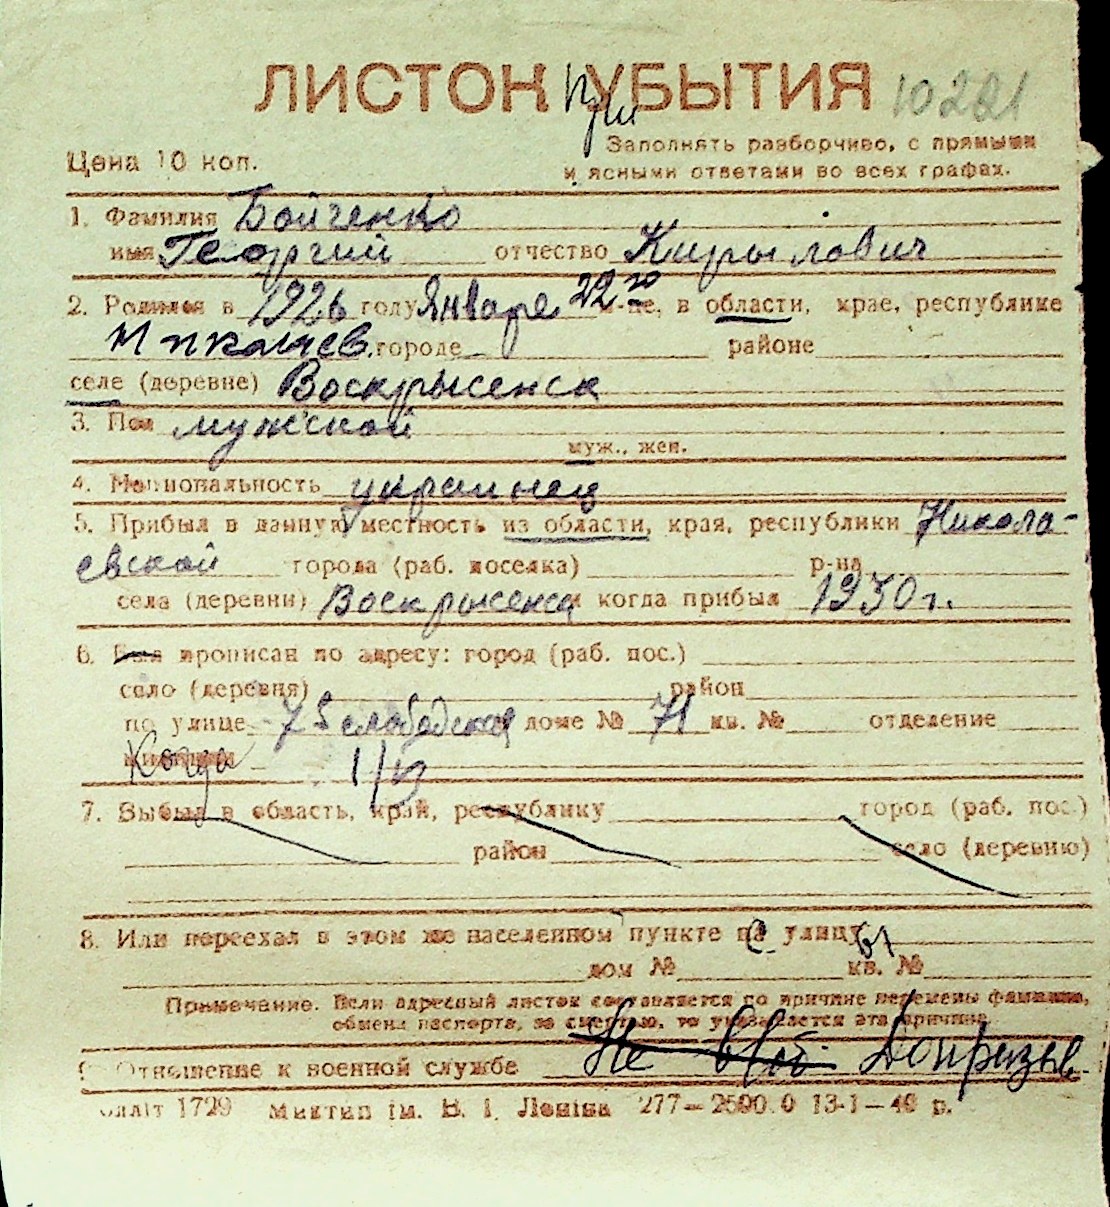 ЛИСТОК УБЫТИЯ
при
10221
Цена 10 коп.
Заполнять разборчиво, с прямыми
и ясными ответами во всех графах.
1. Фамилия Бойченко
имя Георгий отчество Кирылович
2. Родился в 1926 году Январе 22 го м-це, в области, крае, республике
Николаев. городе районе
селе (деревне) Воскрысенск
3. Пол мужской
муж., жен.
4. Национальность украинец
5. Прибыл в данную местность из области, края, республики Никола-
евской города (раб. поселка) р-на
села (деревни) Воскрысенск и когда прибыл 1930 г.
6. Был прописан по адресу: город (раб. пос.)
село (деревня) район
по улице 7 Слободская доме № 71 кв. № отделение
милиции
Когда
7. Выбыл в область, край, республику город (раб. пос.)
район село (деревню)
8. Или переехал в этом же населенном пункте на улицу
с ул
дом № кв. №
Примечание. Если адресный листок составляется по причине перемены фамилии,
обмена паспорта, за смертью, то указывается эта причина.
9. Отношение к военной службе Не в/об. Допризыв.
Облліт 1729 Миктип ім. В. І. Леніна 277—2500.0 13-1—40 р.